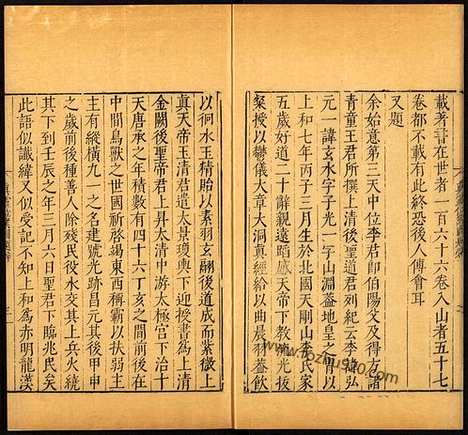 載著書在世者一百六十六卷入山者五十七
卷都不載有此終恐後人傳會耳
又題
余始意第三天中位李君即伯陽父及得七諸
青童王君所撰上清後聖道君列紀云李諱弘
元一諱玄水字子光一字山淵蓋地皇之胄以
上和七年丙子三月生於北國天剛山李氏家
五歲好道二十遠蹈感天帝下教以七光挾
粲授以鬱儀大章大洞真經給以晨羽蓋飲
以徊水玉精貽以素羽玄翮後道成而紫徵上
真天帝玉清君遣太景瓊輿下迎授書爲上清
金闕後聖帝君上昇太清中遊太極宮下治十
天唐承之年積數有四十六丁亥之
中間鳥獸之世國祚啓竭東西稱霸以扶弱
主有縱橫九一之名建號光跡昌元其後甲申
之歲前後種善人除殘民疫水交其上兵火繞
其下到壬辰之年三月六日聖君下臨兆民矣
此語似讖緯又似受記不知上和爲赤明龍漢